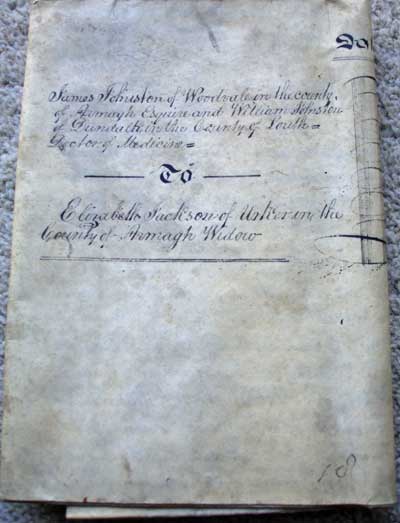 Do
James Johnston of Woodvale in the county
of Armagh Esquire and William Johnston
of Dundalk in the County of Louth =
Doctor of Medicine =
To
Elizabeth Jackson of Urker in the
County of Armagh Widow
18